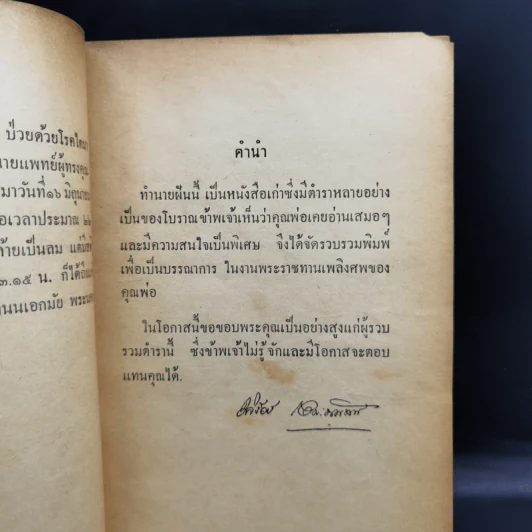 ป่วยด้วยโรคไตมา
นายแพทย์ผู้ทรงคุณ
มาวันที่๑๖ มิถุนายน
เวลาประมาณ ๒๒
ล้ายเป็นลม แต่
๓.๑๕ น. ก็ได้
ถนนเอกมัย พระนคร
คำนำ
ทำนายฝันนี้ เป็นหนังสือเก่าซึ่งมีตำราหลายอย่าง
เป็นของโบราณข้าพเจ้าเห็นว่าคุณพ่อเคยอ่านเสมอๆ
และมีความสนใจเป็นพิเศษ จึงได้จัดรวบรวมพิมพ์
เพื่อเป็นบรรณาการ ในงานพระราชทานเพลิงศพของ
คุณพ่อ
ในโอกาสนี้ขอขอบพระคุณเป็นอย่างสูงแก่ผู้รวบ
รวมตำรานี้ ซึ่งข้าพเจ้าไม่รู้จักและมีโอกาสจะตอบ
แทนคุณได้.